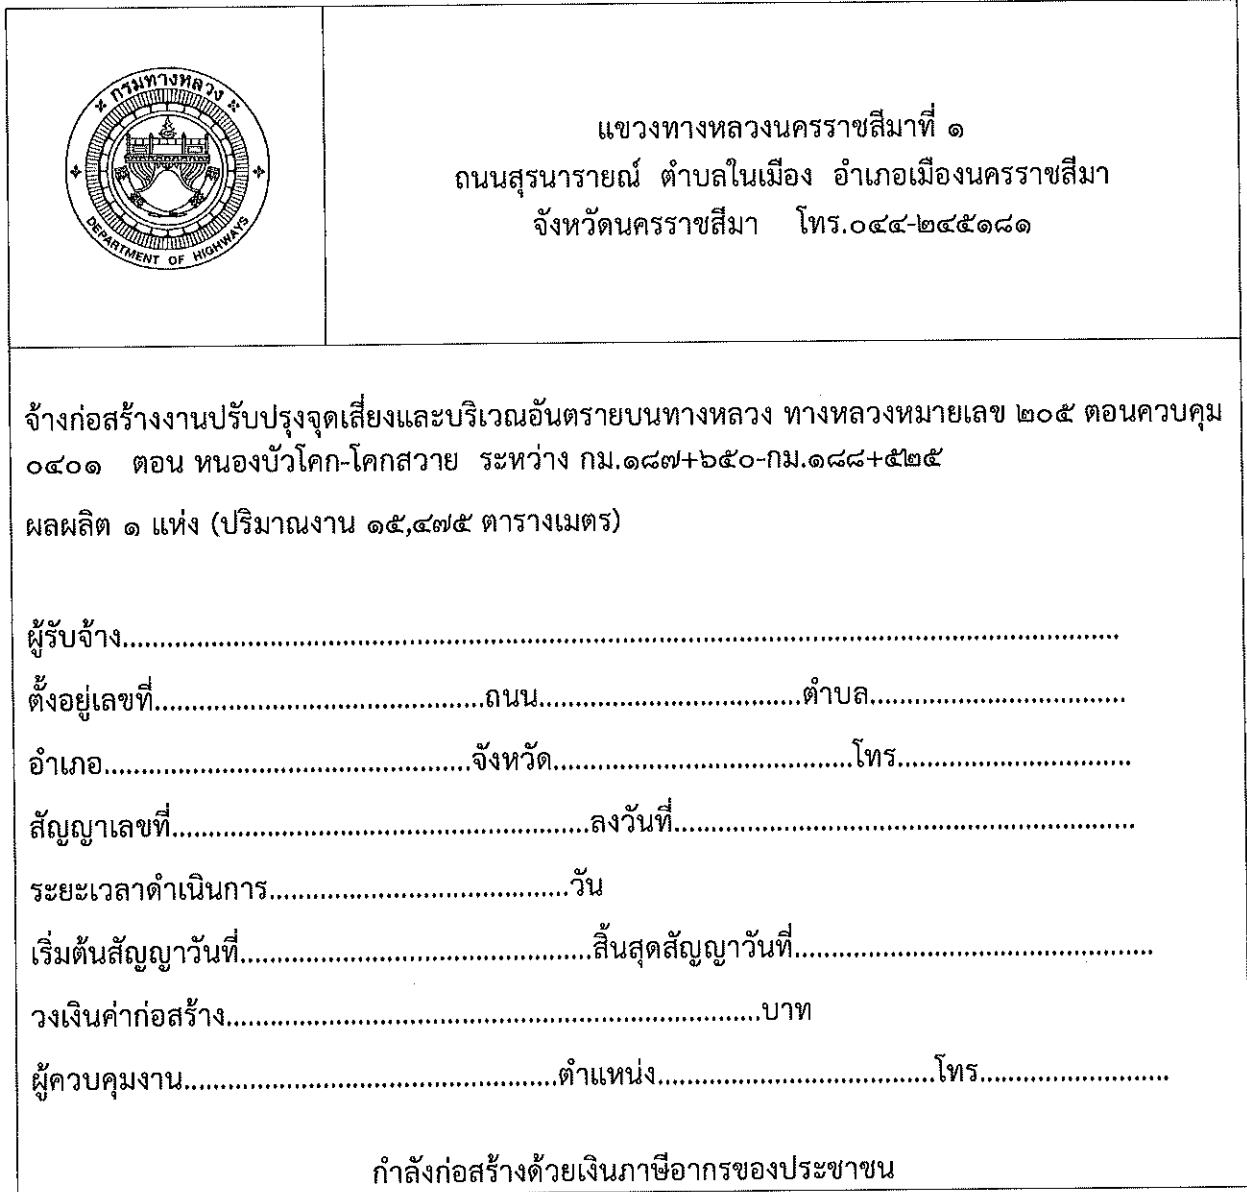 กรมทางหลวง
DEPARTMENT OF HIGHWAYS
แขวงทางหลวงนครราชสีมาที่ ๑
ถนนสุรนารายณ์ ตำบลในเมือง อำเภอเมืองนครราชสีมา
จังหวัดนครราชสีมา โทร.๐๔๔-๒๔๕๑๘๑
จ้างก่อสร้างงานปรับปรุงจุดเสี่ยงและบริเวณอันตรายบนทางหลวง ทางหลวงหมายเลข ๒๐๕ ตอนควบคุม
๐๔๐๑ ตอน หนองบัวโคก-โคกสวาย ระหว่าง กม.๑๘๗+๖๕๐-กม.๑๘๘+๕๒๕
ผลผลิต ๑ แห่ง (ปริมาณงาน ๑๕,๔๗๕ ตารางเมตร)
ผู้รับจ้าง....................................................................................................
ตั้งอยู่เลขที่............................................ถนน...................................ตำบล..................................
อำเภอ.................................................จังหวัด........................................โทร...............................
สัญญาเลขที่........................................................ลงวันที่.............................................................
ระยะเวลาดำเนินการ........................................วัน
เริ่มต้นสัญญาวันที่...............................................สิ้นสุดสัญญาวันที่................................................
วงเงินค่าก่อสร้าง.......................................................................บาท
ผู้ควบคุมงาน..................................................ตำแหน่ง.....................................โทร.........................
กำลังก่อสร้างด้วยเงินภาษีอากรของประชาชน